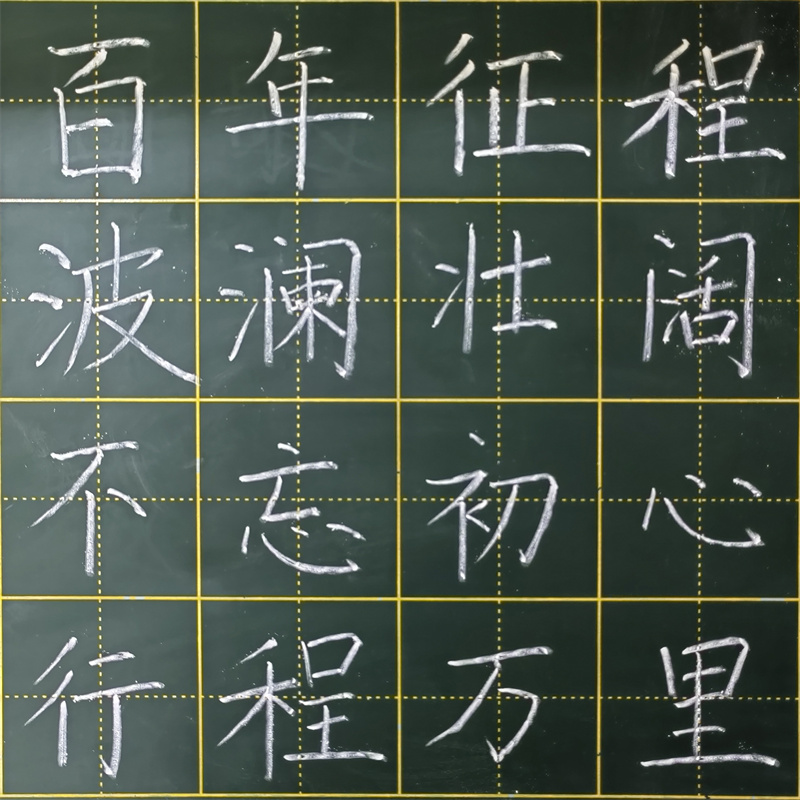 百年征程
波澜壮阔
不忘初心
行程万里